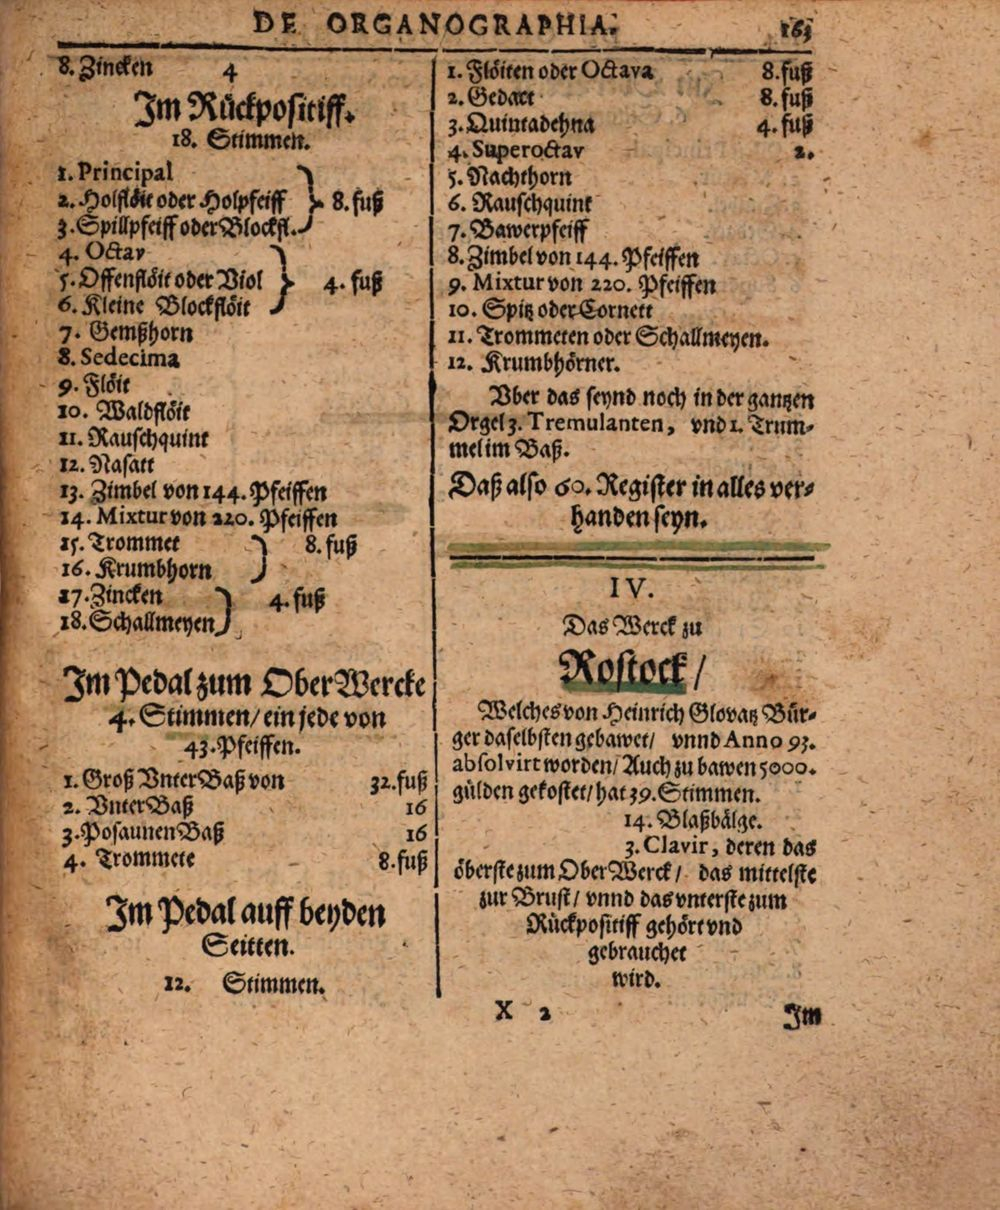 DE ORGANOGRAPHIA. 163
8. Zincken 4
Im Rückpositiff.
18. Stimmen.
1. Principal
2. Holflöit oder Holpfeiff } 8. fuß
3. Spillpfeiff oder Blockfl.
4. Octav
5. Offenflöit oder Viol } 4. fuß
6. Kleine Blockflöit
7. Gemßhorn
8. Sedecima
9. Flöit
10. Waldflöit
11. Rauschquint
12. Nasatt
13. Zimbel von 144. Pfeiffen
14. Mixtur von 220. Pfeiffen
15. Trommet } 8. fuß
16. Krumbhorn
17. Zincken } 4. fuß
18. Schallmeyen
Im Pedal zum Ober Wercke
4. Stimmen/ ein jede von
43. Pfeiffen.
1. Groß Vnter Baß von 32. fuß
2. Vnter Baß 16
3. Posaunen Baß 16
4. Trommete 8. fuß
Im Pedal auff beyden
Seitten.
12. Stimmen.
1. Flöiten oder Octava 8. fuß
2. Gedact 8. fuß
3. Quintadehna 4. fuß
4. Superoctav 2.
5. Nachthorn
6. Rauschquint
7. Bawerpfeiff
8. Zimbel von 144. Pfeiffen
9. Mixtur von 220. Pfeiffen
10. Spitz oder Cornett
11. Trommeten oder Schallmeyen.
12. Krumbhörner.
Vber das seynd noch in der gantzen
Orgel 3. Tremulanten, vnd 1. Trum-
mel im Baß.
Daß also 60. Register in alles ver-
handen seyn.
IV.
Das Werck zu
Rostock/
Welches von Heinrich Glovatz Bür-
ger daselbsten gebawet/ vnnd Anno 93.
absolvirt worden/ Auch zu bawen 5000.
gülden gekostet/ hat 39. Stimmen.
14. Blaßbälge.
3. Clavir, deren das
öberste zum Ober Werck/ das mittelste
zur Brust/ vnnd das vnterste zum
Rückpositiff gehört vnd
gebrauchet
wird.
X 2 Im